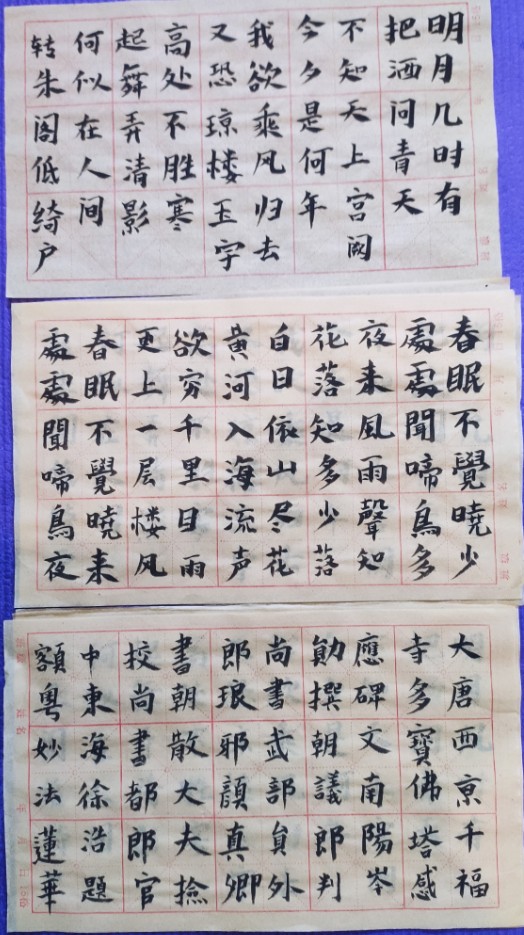 明月几时有
把酒问青天
不知天上宫阙
今夕是何年
我欲乘风归去
又恐琼楼玉宇
高处不胜寒
起舞弄清影
何似在人间
转朱阁低绮户
春眠不覺曉少
處處聞啼鳥多
夜来風雨聲知
花落知多少落
白日依山尽花
黄河入海流声
欲穷千里目雨
更上一层楼风
春眠不覺曉来
處處聞啼鳥夜
大唐西京千福
寺多寶佛塔感
應碑文南陽岑
勛撰朝議郎判
尚書武部員外
郎琅邪顔真卿
書朝散大夫撿
校尚書都郎官
中東海徐浩題
額粵妙法蓮華